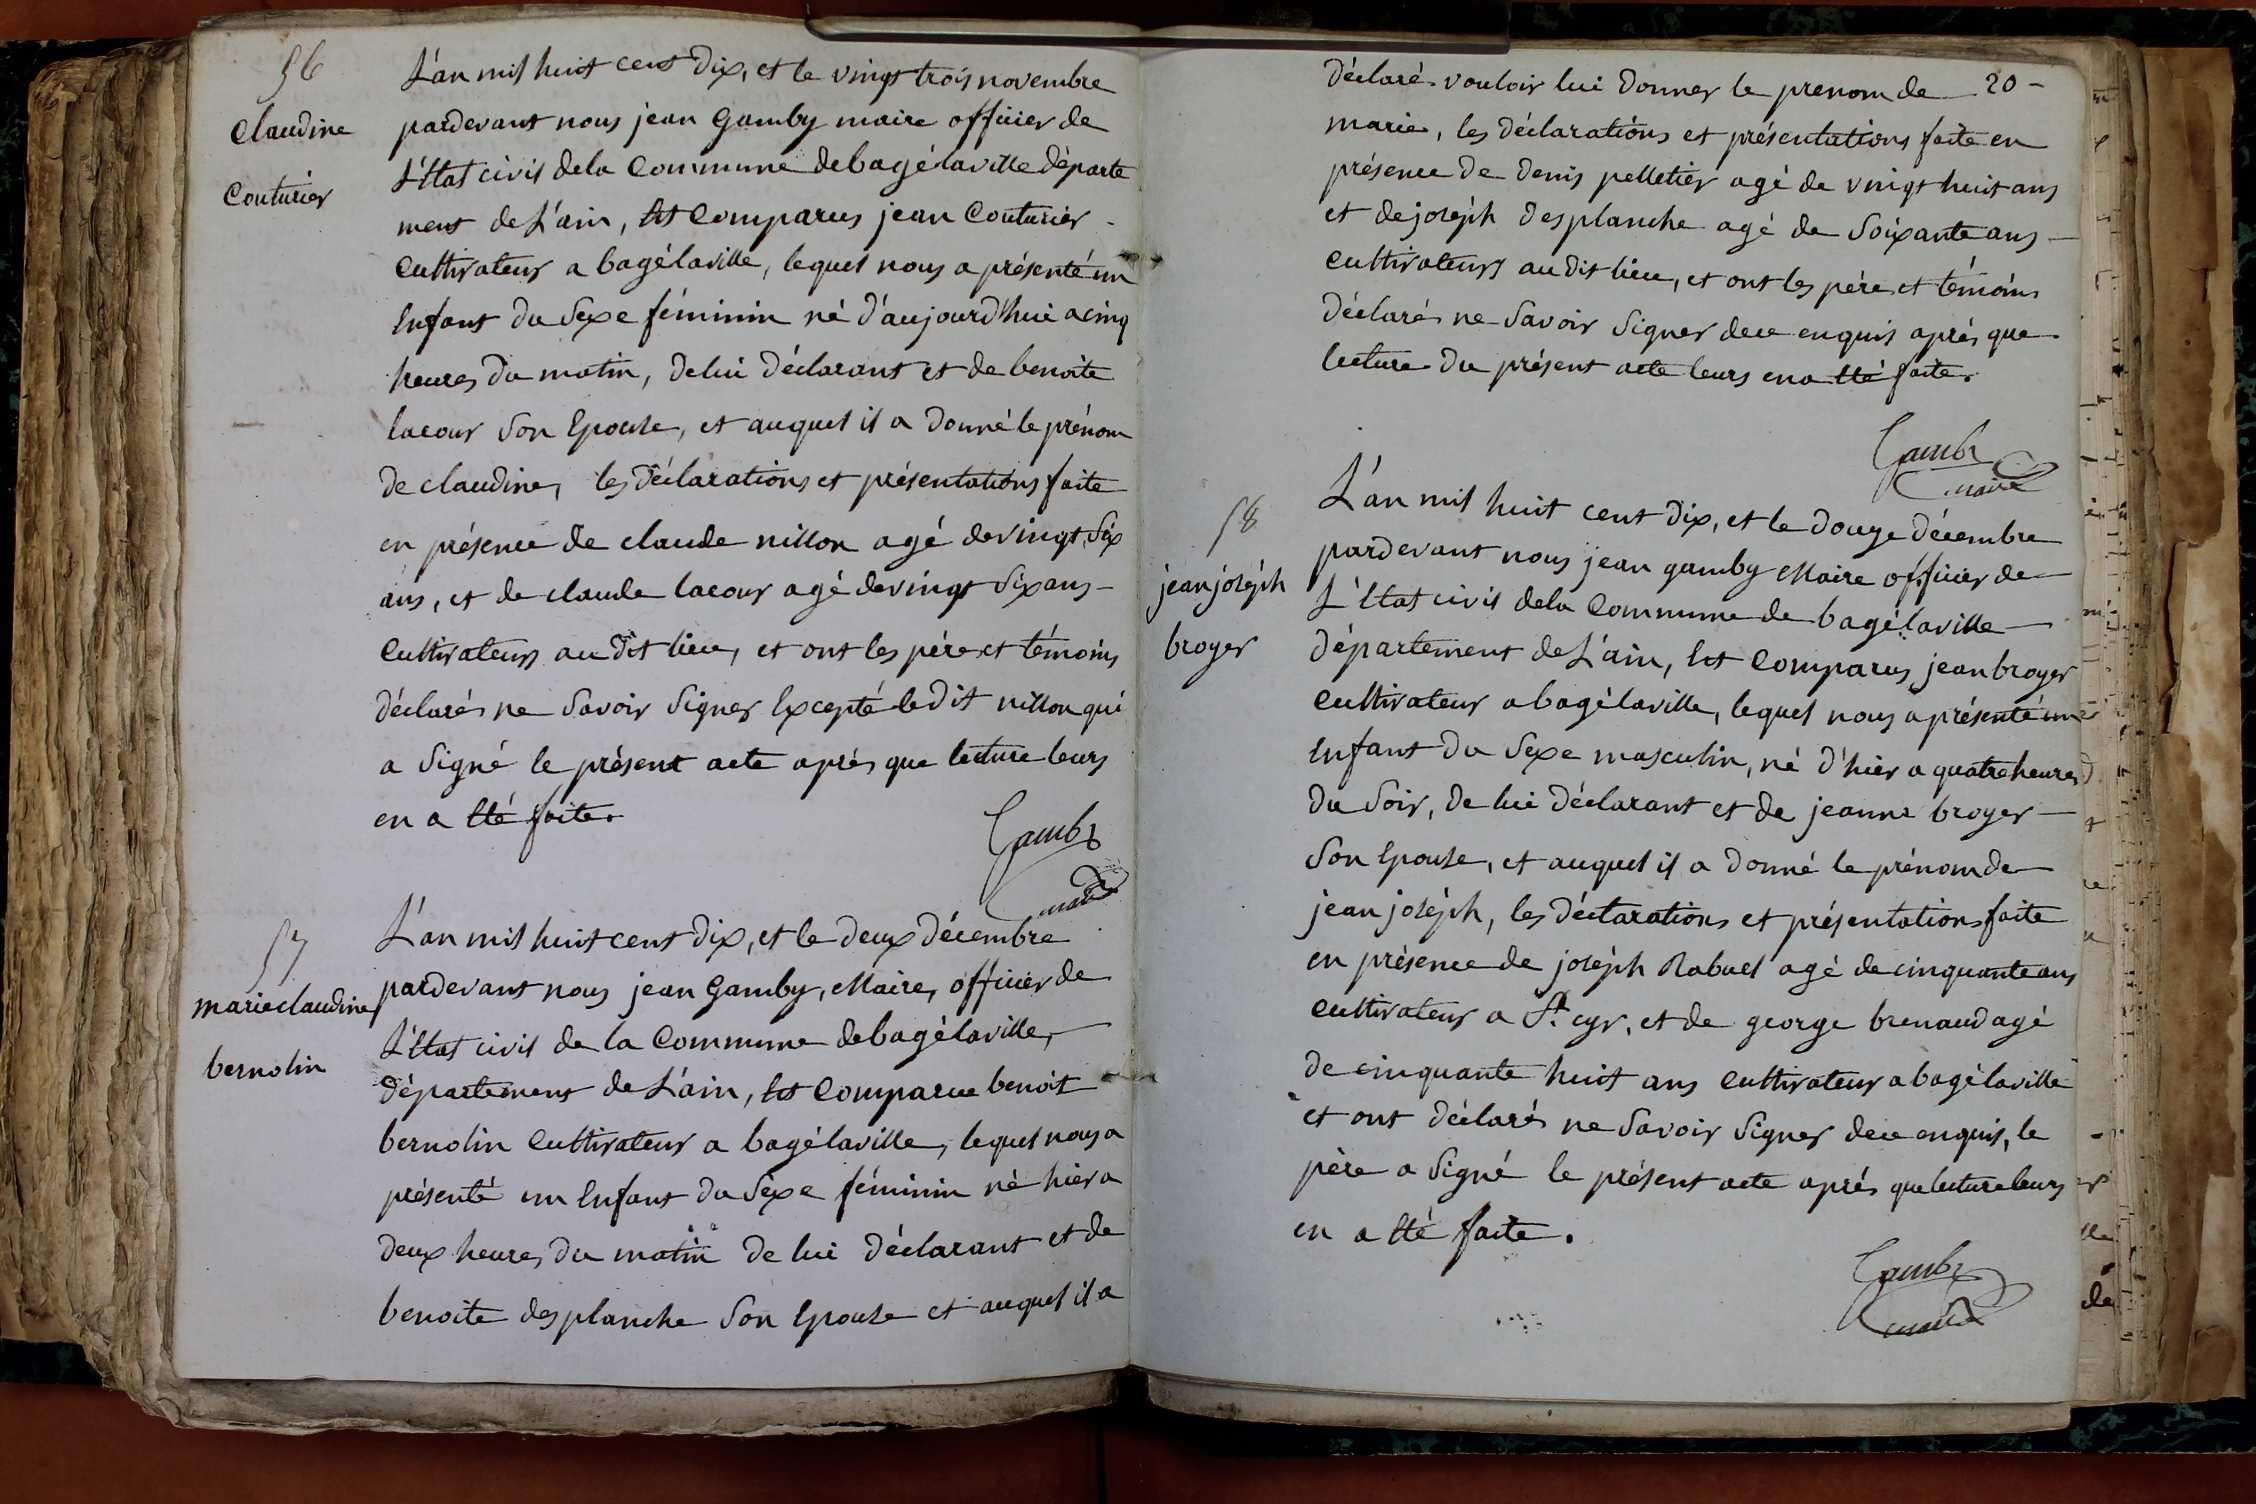 56
Claudine
Couturier
L'an mil huit cent dix, et le vingt trois novembre
pardevant nous jean Gamby maire officier de
L'Etat civil dela Commune debagélaville départe
ment de L'ain, Est Comparus jean Couturier -
Cultivateur a bagélaville, lequel nous a présenté un
Enfant du Sexe féminin né d'aujourd'hui a cinq
heures du matin, delui déclarant et de benoite
lacour Son Epouse, et auquel il a donné le prénom
de claudine, les déclarations et présentations faite
en présence de claude nillon agé devingt Six
ans, et de claude lacour agé devingt Six ans -
Cultivateurs au dit lieu, et ont les père et témoins
déclarés ne Savoir Signer Excepté le dit nillon qui
a Signé le présent acte après que lecture leurs
en a Eté faite.
Gamby
maire
57
marie claudine
bernolin
L'an mil huit cent dix, et le deux décembre
pardevant nous jean Gamby, Maire, officier de
L'Etat civil de la Commune debagélaville,
département de L'ain, Est Comparue benoit
bernolin Cultivateur a bagélaville, lequel nous a
présenté un Enfant du Sexe féminin né hier a
deux heures du matin de lui déclarant et de
benoite desplanche Son Epouse et auquel il a
déclaré vouloir lui donner le prenom de 20 -
marie, les déclarations et présentations faite en
présence de denis pelletier agé de vingt huit ans
et de joseph desplanche agé de Soixante ans -
Cultivateurs au dit lieu, et ont les père et témoins
déclarés ne Savoir Signer dece enquis après que
lecture du présent acte leurs en a Eté faite.
Gamby
maire
58
jean joseph
broyer
L'an mil huit cent dix, et le douze décembre
pardevant nous jean gamby Maire officier de
L'Etat civil dela Commune de bagélaville -
département de L'ain, Est Comparus jean broyer
Cultivateur a bagélaville, lequel nous a présenté un
Enfant du Sexe masculin, né d'hier a quatre heures
du Soir, de lui déclarant et de jeanne broyer -
Son Epouse, et auquel il a donné le prénom de
jean joseph, les déclarations et présentations faite
en présence de joseph Rabuel agé de cinquante ans
Cultivateur a St. cyr, et de george brenaud agé
de cinquante huit ans Cultivateur a bagélaville
et ont déclarés ne Savoir Signer dece enquis, le
père a Signé le présent acte après que lecture leurs
en a Eté faite.
Gamby
maire